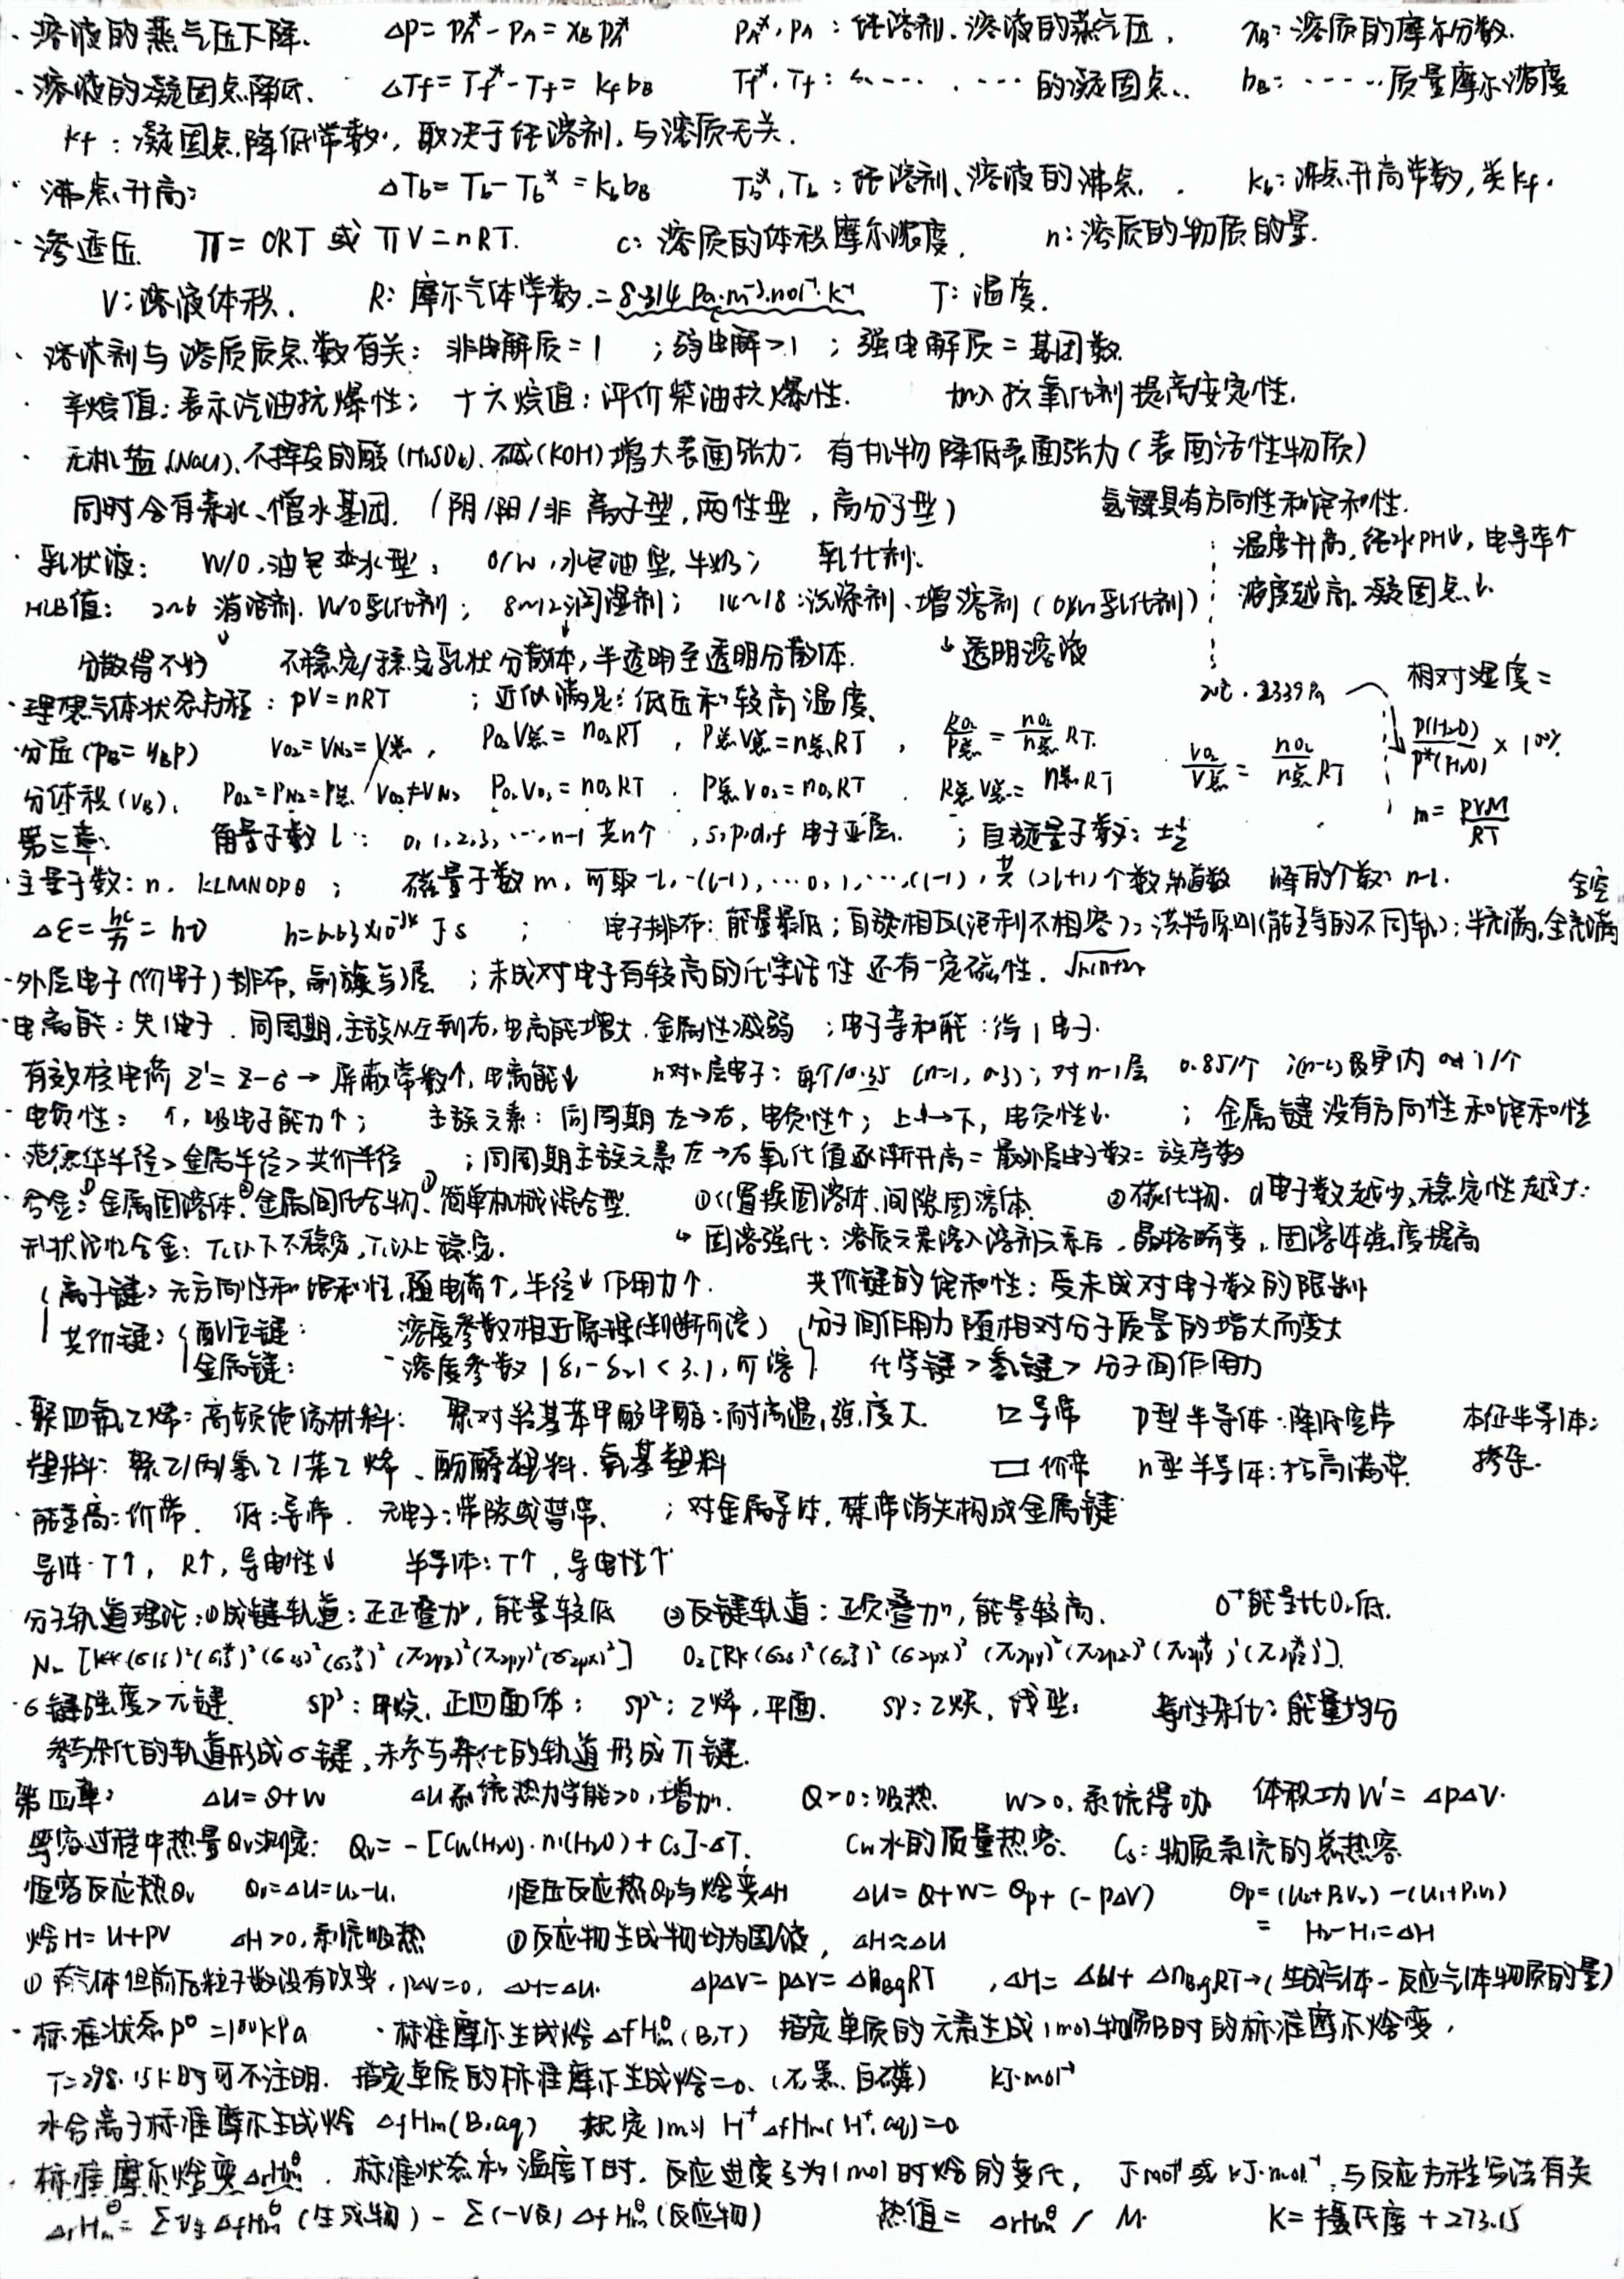 · 溶液的蒸气压下降. Δp = pA* - pA = xB pA* pA*, pA : 纯溶剂、溶液的蒸气压, xB: 溶质的摩尔分数.
· 溶液的凝固点降低. ΔTf = Tf* - Tf = Kf bB Tf*, Tf : ‥ ‥‥ , ‥‥ 的凝固点. bB: ‥‥ 质量摩尔浓度
Kf : 凝固点降低常数, 取决于纯溶剂, 与溶质无关.
· 沸点升高: ΔTb = Tb - Tb* = Kb bB Tb*, Tb : 纯溶剂、溶液的沸点. Kb: 沸点升高常数, 类Kf.
· 渗透压 π = cRT 或 πV = nRT. c: 溶质的体积摩尔浓度. n: 溶质的物质的量.
V: 溶液体积. R: 摩尔气体常数 = 8.314 Pa·m⁻³·mol⁻¹·K⁻¹ T: 温度.
· 溶剂与溶质质点数有关: 非电解质 = 1 ; 弱电解 > 1 ; 强电解质 = 基团数
· 辛烷值: 表示汽油抗爆性; 十六烷值: 评价柴油抗爆性. 加入抗氧化剂提高安定性.
· 无机盐 (NaCl)、不挥发的酸 (H₂SO₄)、碱 (KOH) 增大表面张力; 有机物降低表面张力 (表面活性物质)
同时含有亲水、憎水基团. (阴/阳/非 离子型, 两性型, 高分子型) 氢键具有方向性和饱和性.
· 乳状液: W/O, 油包水型; O/W, 水包油型, 牛奶; 乳化剂: 温度升高, 纯水PH↓, 电导率↑
HLB值: 2~6 消泡剂. W/O乳化剂; 8~12 润湿剂; 14~18: 洗涤剂、增溶剂 (O/W乳化剂) 浓度越高, 凝固点↓.
分散得不好 不稳定/稳定乳状分散体, 半透明至透明分散体. ↓透明溶液
· 理想气体状态方程: pV = nRT ; 近似满足: 低压和较高温度. 20℃, 2339Pa 相对湿度 = p(H₂O)/p*(H₂O) × 100%
· 分压 (pB = yB p) VO₂ = VN₂ = V总, PO₂V总 = nO₂RT, P总V总 = n总RT, PO₂/P总 = nO₂/n总 RT.
分体积 (VB). PO₂ = PN₂ = P总 VO₂ ≠ VN₂ PO₂VO₂ = nO₂RT. P总VO₂ = nO₂RT. P总V总 = n总RT VO₂/V总 = nO₂/n总 RT m = PVM/RT
第三章: 角量子数 l: 0, 1, 2, 3, …, n-1 共n个, s, p, d, f 电子亚层. ; 自旋量子数: ±½
· 主量子数: n. KLMNOPQ ; 磁量子数 m, 可取 -l, -(l-1), …0, 1, …, (l-1), 共 (2l+1) 个数 峰的个数: n-l. 全空
Δε = hc/λ = hν h = 6.63×10⁻³⁴ J s ; 电子排布: 能量最低; 自旋相反(泡利不相容); 洪特原则(能量等的不同轨); 半充满, 全充满
· 外层电子 (价电子) 排布, 副族写2层 ; 未成对电子有较高的化学活性 还有一定磁性. √n(n+2)
· 电离能: 失1电子. 同周期, 主族从左到右, 电离能增大. 金属性减弱 ; 电子亲和能: 得1电子.
有效核电荷 Z' = Z-σ → 屏蔽常数↑, 电离能↓ n对n层电子: 每个/0.35 (n=1, 0.3); 对n-1层 0.85/个 ; (n-2)及更内 1/个
· 电负性: ↑, 吸电子能力↑; 主族元素: 同周期 左→右, 电负性↑; 上→下, 电负性↓. ; 金属键没有方向性和饱和性
· 范德华半径 > 金属半径 > 共价半径 ; 同周期主族元素 左→右 氧化值逐渐升高 = 最外层电子数 = 族序数
· 合金: ①金属固溶体. ②金属间化合物. ③简单机械混合型. ①<(置换固溶体, 间隙固溶体. ②碳化物. d电子数越少, 稳定性越大:
形状记忆合金: T₁以下不稳定, T₁以上稳定. ↳ 固溶强化: 溶质元素溶入溶剂元素后, 晶格畸变, 固溶体强度提高
离子键: 无方向性和饱和性, 随电荷↑, 半径↓ 作用力↑. 共价键的饱和性: 受未成对电子数的限制
共价键: 配位键: 溶度参数相近原理(判断可溶) 分子间作用力随相对分子质量的增大而变大
金属键: 溶度参数 |δ₁-δ₂| < 3.1, 可溶 化学键 > 氢键 > 分子间作用力
· 聚四氟乙烯: 高频绝缘材料: 聚对羟基苯甲酸甲酯: 耐高温, 强度大. 口导带 p型半导体: 降低空带 本征半导体:
塑料: 聚乙/丙/氯乙/苯乙 烯、酚醛塑料、氨基塑料 口价带 n型半导体: 抬高满带. 掺杂.
· 能量高: 价带. 低: 导带. 无电子: 带隙或禁带. ; 对金属导体, 禁带消失构成金属键
导体: T↑, R↑, 导电性↓ 半导体: T↑, 导电性↑
分子轨道理论: ①成键轨道: 正正叠加, 能量较低 ②反键轨道: 正负叠加, 能量较高. O⁺能量比O₂低.
N₂ [KK(σ1s)²(σ1s*)²(σ2s)²(σ2s*)²(π2pz)²(π2py)²(σ2px)²] O₂[KK(σ2s)²(σ2s*)²(σ2px)²(π2py)²(π2pz)²(π2py*)¹(π2pz*)¹].
· σ键强度 > π键. sp³: 甲烷, 正四面体; sp²: 乙烯, 平面. sp: 乙炔, 线型; 等性杂化: 能量均分
参与杂化的轨道形成σ键, 未参与杂化的轨道形成π键.
第四章: ΔU = Q+W ΔU系统热力学能>0, 增加. Q>0: 吸热. W>0, 系统得功 体积功W' = ΔpΔV.
等容过程中热量Qv测定: Qv = -[Cw(H₂O)·m(H₂O) + Cs]·ΔT. Cw水的质量热容: Cs: 物质系统的总热容
恒容反应热Qv Qv = ΔU = U₂-U₁ 恒压反应热Qp与焓变ΔH ΔU = Q+W = Qp + (-pΔV) Qp = (U₂+P₂V₂) - (U₁+P₁V₁)
焓 H = U+PV ΔH>0, 系统吸热 ①反应物生成物均为固液, ΔH≈ΔU = H₂-H₁ = ΔH
① 有气体但前后粒子数没有改变, pΔV=0, ΔH=ΔU. ΔpΔV = pΔV = ΔnBgRT, ΔH = ΔU + ΔnBgRT → (生成气体 - 反应气体物质的量)
· 标准状态p⊖ = 100kPa · 标准摩尔生成焓 ΔfHm⊖(B,T) 指定单质的元素生成1mol物质B时的标准摩尔焓变,
T=298.15K时可不注明. 指定单质的标准摩尔生成焓=0. (石墨、白磷) kJ·mol⁻¹
水合离子标准摩尔生成焓 ΔfHm(B,aq) 规定1mol H⁺ ΔfHm(H⁺, aq)=0
· 标准摩尔焓变 ΔrHm⊖. 标准状态和温度T时, 反应进度ξ为1mol时焓的变化, J·mol⁻¹ 或 kJ·mol⁻¹, 与反应方程写法有关
ΔrHm⊖ = ΣνB ΔfHm⊖ (生成物) - Σ(-νB) ΔfHm⊖ (反应物) 热值 = ΔrHm⊖ / M. K = 摄氏度 + 273.15